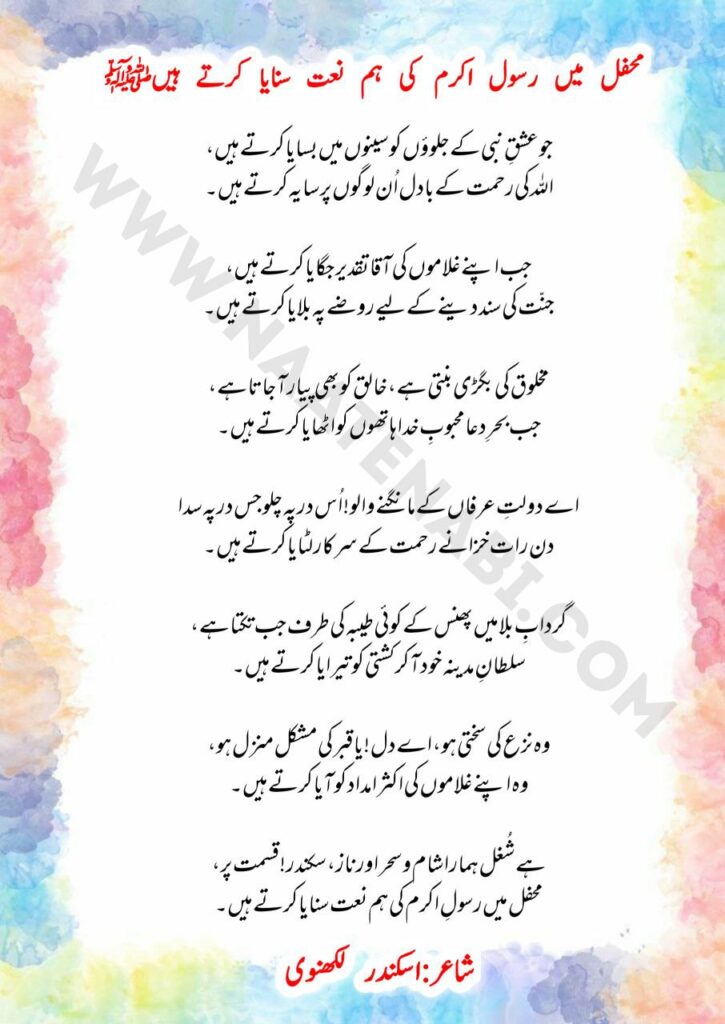 محفل میں رسول اکرم کی ہم نعت سنایا کرتے ہیںﷺ
جو عشقِ نبی کے جلوؤں کو سینوں میں بسایا کرتے ہیں،
اللہ کی رحمت کے بادل اُن لوگوں پر سایہ کرتے ہیں۔
جب اپنے غلاموں کی آقا تقدیر جگایا کرتے ہیں،
جنّت کی سند دینے کے لیے روضے پہ بلایا کرتے ہیں۔
مخلوق کی بگڑی بنتی ہے، خالق کو بھی پیار آجاتا ہے،
جب بحرِ دعا محبوبِ خدا ہاتھوں کو اٹھایا کرتے ہیں۔
اے دولتِ عرفاں کے مانگنے والو! اُس در پہ چلو جس در پہ سدا
دن رات خزانے رحمت کے سرکار لٹایا کرتے ہیں۔
گردابِ بلا میں پھنس کے کوئی طیبہ کی طرف جب تکتا ہے،
سلطانِ مدینہ خود آکر کشتی کو تیرایا کرتے ہیں۔
وہ نزع کی سختی ہو، اے دل! یا قبر کی مشکل منزل ہو،
وہ اپنے غلاموں کی اکثر امداد کو آیا کرتے ہیں۔
ہے شُغل ہمارا شام و سحر اور ناز، سکندر! قسمت پر،
محفل میں رسولِ اکرم کی ہم نعت سنایا کرتے ہیں۔
شاعر:اسکندر لکھنوی
WWW.NAATENABI.COM